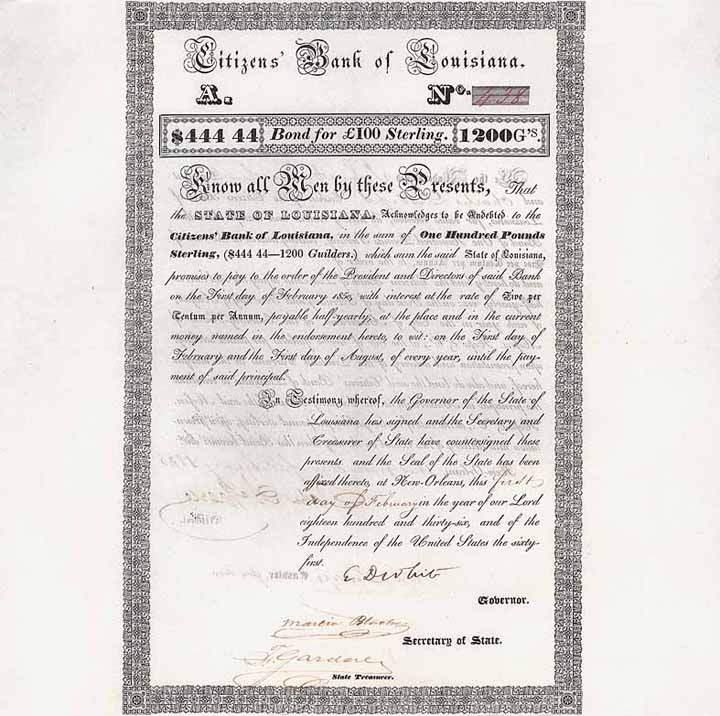 Citizens' Bank of Louisiana.
A. No. 438
$444 44 Bond for £100 Sterling. 1200 G's.
Know all Men by these Presents, That
the STATE OF LOUISIANA, Acknowledges to be Indebted to the
Citizens' Bank of Louisiana, in the sum of One Hundred Pounds
Sterling, ($444 44—1200 Guilders.) which sum the said State of Louisiana,
promises to pay to the order of the President and Directors of said Bank
on the First day of February 1850, with interest at the rate of Five per
Centum per Annum, payable half-yearly, at the place and in the current
money named in the endorsement hereto, to wit: on the First day of
February and the First day of August, of every year, until the pay-
ment of said principal.
In Testimony whereof, the Governor of the State of
Louisiana has signed and the Secretary and
Treasurer of State have countersigned these
presents and the Seal of the State has been
affixed thereto, at New-Orleans, this first
day of February in the year of our Lord
eighteen hundred and thirty-six, and of the
Independence of the United States the sixty-
first.
E D White
Governor.
Martin Blache
Secretary of State.
F. Gardere
State Treasurer.